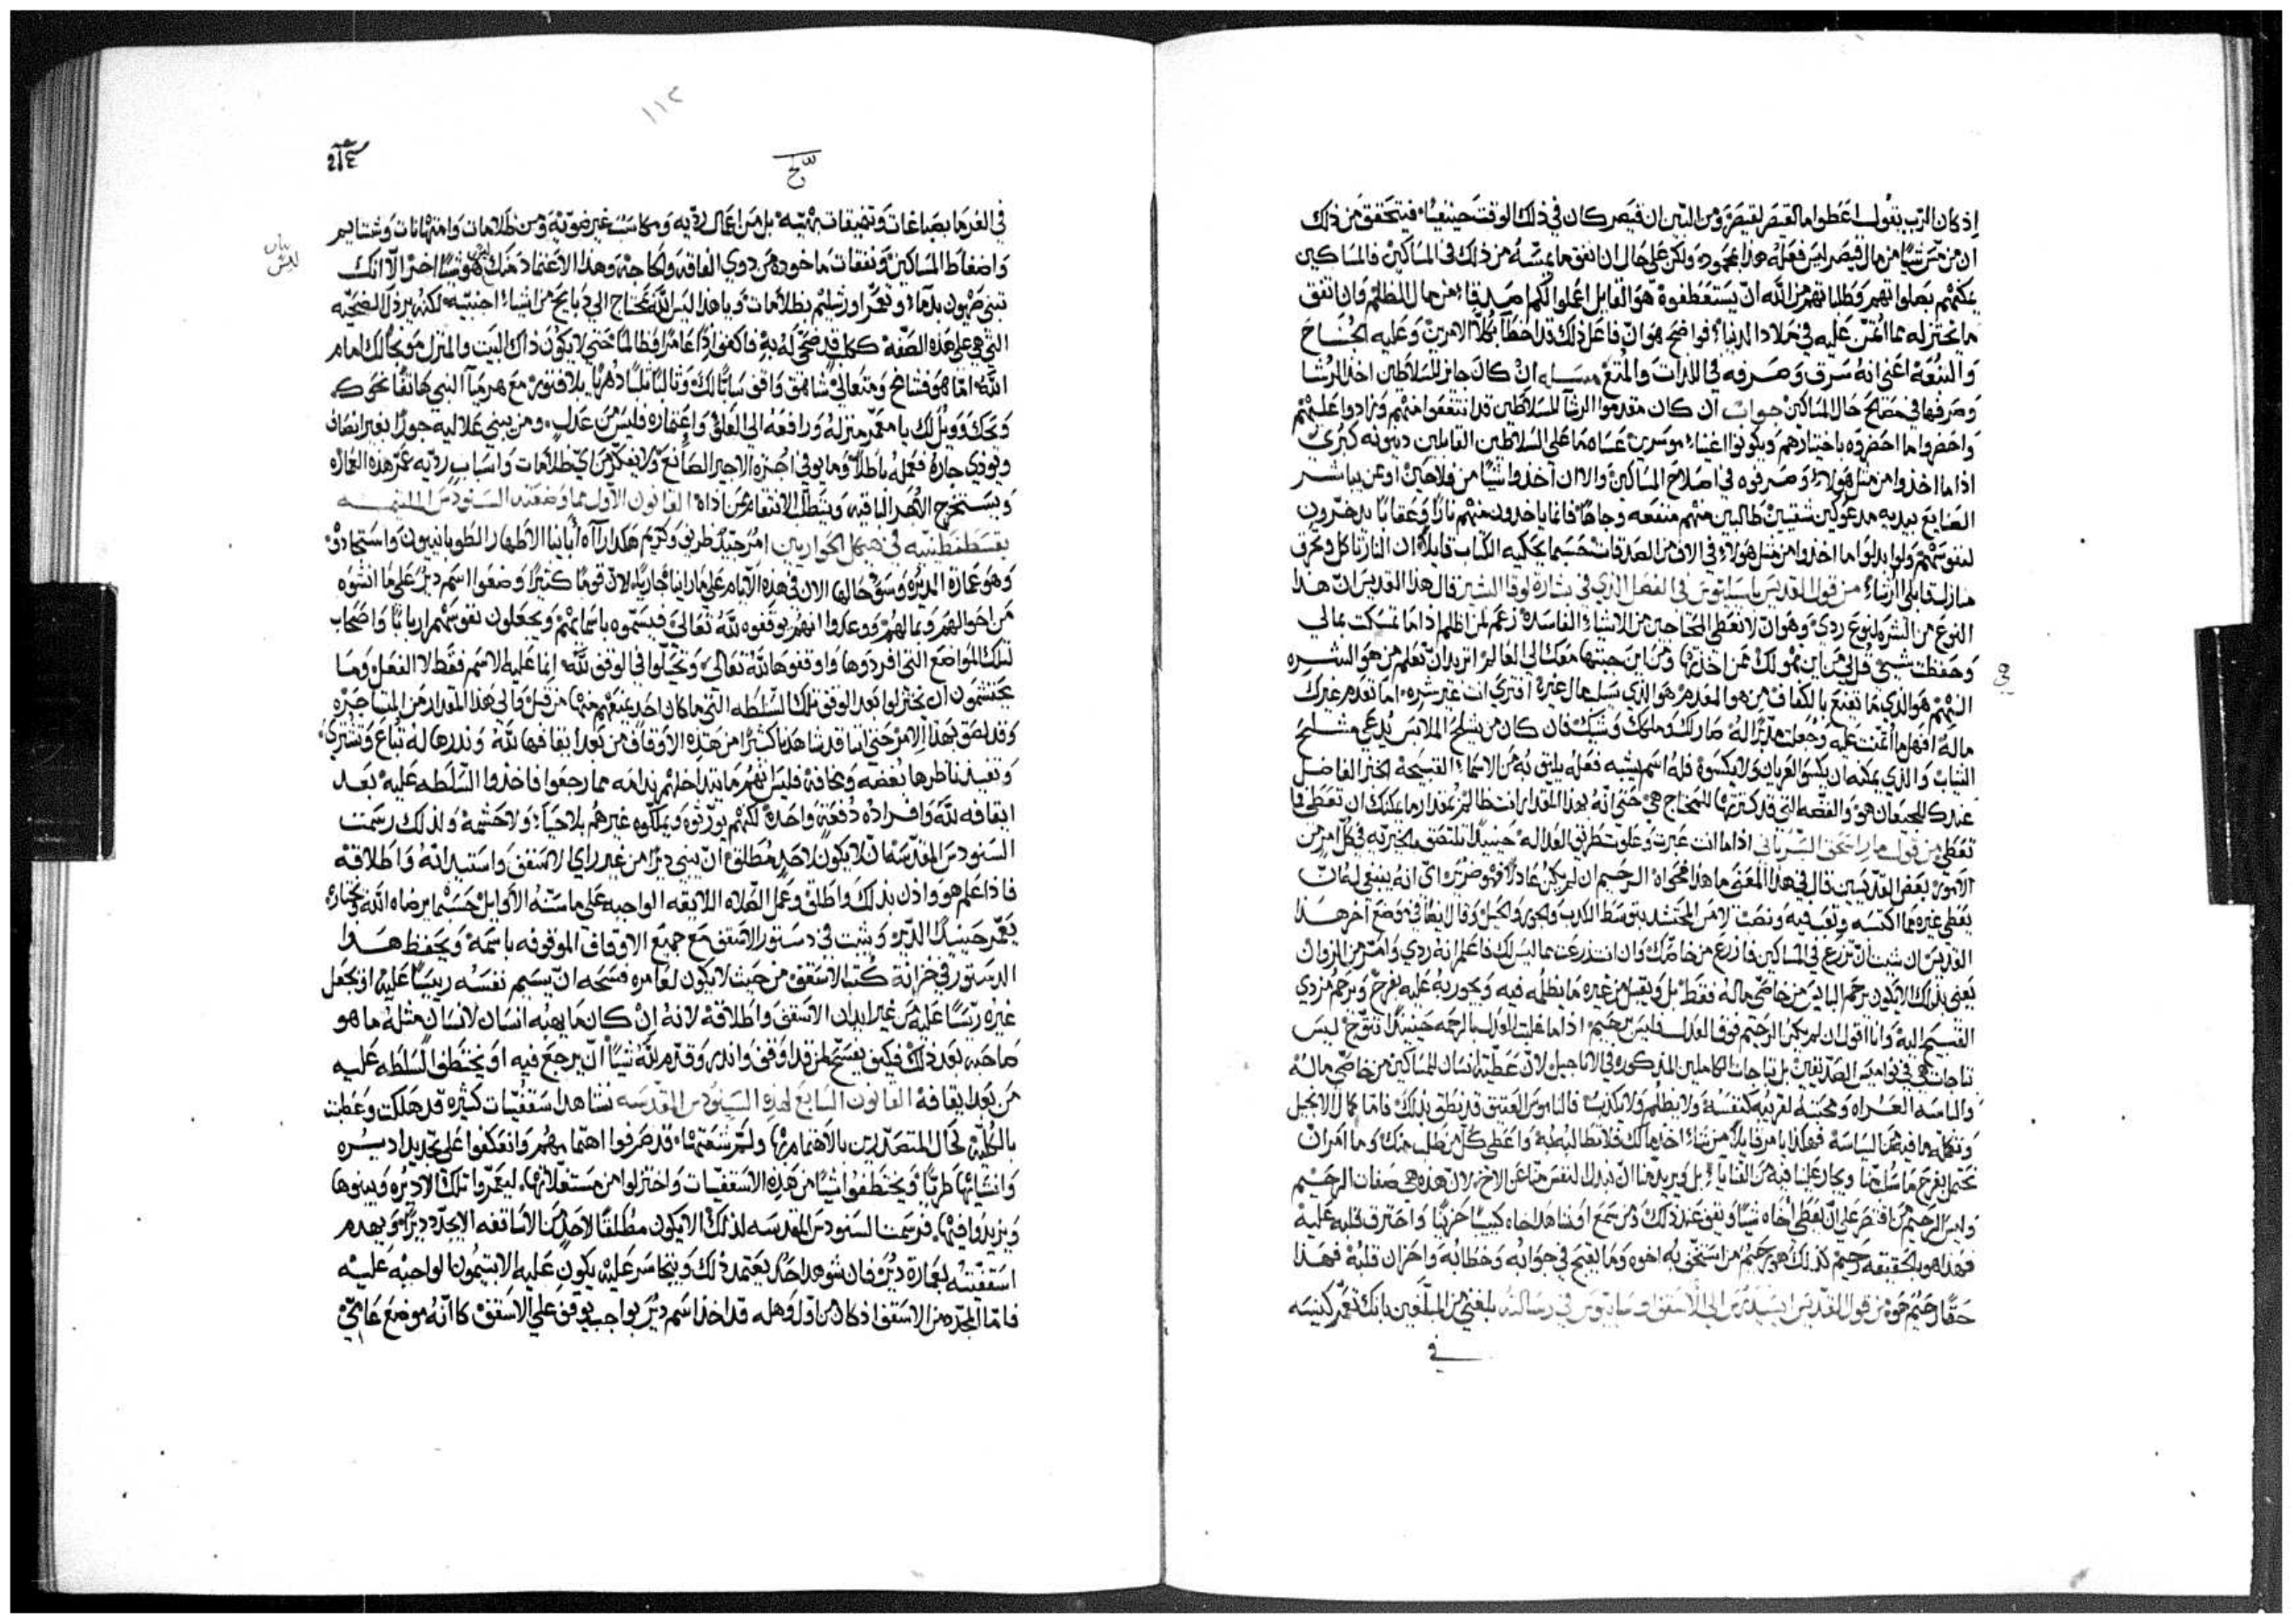 اذ كان الرب يقول اعطوا ما لقيصر لقيصر ومن البين ان قيصر كان في ذلك الوقت حنيفيا فيتحقق من ذلك
ان من شيا من مال قيصر ليس فعله هذا بمحمود ولكن على حال ان انفق ما يمسه من ذلك في المساكين فالمساكين
يمكنهم بصلواتهم وطلباتهم من الله ان يستعطفوه هو القايل اعملوا لكم صدقا من مال الظلم وان انفق
ما يختزله مما اتمن عليه في ملاد الدنيا فواضح هو ان فاعل ذلك قد اخطا بكلا الامرين وعليه الجناح
والتبعة اعني انه سرق وصرفه في اللذات والمتع مساله ان كان جايز للسلاطين اخذ الرشا
وصرفها في مصالح حال المساكين جواب ان كان مقدموا الرشا للسلاطين قد انتفعوا منهم وزادوا عليهم
واحضروا ما احضروه باختيارهم ويكونوا اغنياء موسرين عساه ما على السلاطين القابلين دينونه كبرى
اذا ما اخذوا من مثل هولاء وصرفوه في اصلاح المساكين والا ان اخذوا شيا من فلاحين او عن يباشر
الصنايع بيديه مدعوكين شقيين طالبين منهم منفعه وجاها فانما ياخذون منهم نارا وعقابا يدخرون
لنفوسهم ولو ابدلوا ما اخذوا من مثل هولاء في الاف من الصدقات حسبما يحكيه الكتاب قايلا ان النار تاكل وتحرق
منازل قابلي الرشاء من قول القديس باسيليوس في الفصل الذي في بشارة لوقا البشير قال هذا القديس ان هذا
النوع من الشره لنوع ردي وهو ان لا نعطي المحتاجين من الاشياء الفاسدة زعم لمن اظلم اذا ما تمسكت بمالي
وحفظت شيي قل لي من اين هو لك ممن اخذته ومن اين جبتها معك الى العالم اتريد ان تعلم من هو الشره
النهم هو الذي ما تقنع بالكفاف من هو المعدم هو الذي سلب مال غيره افترى انت غير شره اما تعدم غيرك
ماله افهل ما ائتمنت عليه وجعلت مدبرا له صار لك وملكك وشيك فان كان من يشلح الملابس يدعى مشلح
الثياب والذي يمكنه ان يكسو العريان ولا يكسوه فله اسم يشبه فعله يليق به من الاسماء القبيحة الخبز الفاضل
عندك للجيعان هو والفضه التي قد كنزتها للمحتاج هي حتى انه بهذا المقدار انت ظالم بمقدار ما يمكنك ان تعطي فما
تعطي من قول مار اسحق السرياني اذا ما انت عبرت وعلوت طريق العداله حينيذ تلتصق بالحريه في كل امر من
الامور بعض القديسين قال في هذا المعنى ما هذا فحواه الرحيم ان لم يكن عادلا فهو ضرير اي انه ينبغي له ان
يعطي غيره مما اكتسبه وتعب فيه ونصب لا من المحتشد بتوسط الكذب والجور والحيل وقال ايضا في موضع اخر هذا
القديس ان شيت ان تزرع في المساكين فازرع من خاصتك وان انت زرعت مما ليس لك فاعلم انه ردي وامر من الزوان
يعني بذلك الا يكون يرحم البايس من خاصي ماله فقط بل ويقبل من غيره ما يظلمه فيه ويجور به عليه بفرح ويرحم مزدي
القسيم اليه وانا اقول ان لم يكن الرحيم فوق العدل فليس برحيم اذا ما غلبت العدل بالرحمه حينيذ تتوج ليس
تاجات هي في نواميس الصديقين بل تاجات الكاملين المذكوره في الاناجيل لان عطية انسان للمساكين من خاصي ماله
والباسه العراه ومحبته لقريبه كنفسه ولا يظلم ولا يكذب فالناموس العتيق قد نطق بذلك فاما كمال الانجيل
وتكلمه ما فيه من السياسة فهكذا يامر قايلا من شاء اخذ مالك فلا تطالبه به واعطي كل من طلب منك وما امر ان
نحتمل بفرح ما سلب منا ويجار علينا فيه من القنايا بل ويريد منا ان نبذل النفس منا عن الاخ لان هذه هي صفات الرحيم
وليس الرحيم من اقتصر على ان يعطي اخاه شيا ويقف عند ذلك بل من سمع او شاهد اخاه كييبا حزينا واحترق قلبه عليه
فهذا هو بالحقيقه رحيم كذلك هو رحيم من استخف به اخوه وما يقبح في جوابه وخطابه واحزان قلبه فهذا
حقا رحيم هو من قول القديس ايسيذرس الى الاسقف في رسالته بلغني من المبلغين بانك تعمر كنيسه
في
١١٢
في الفرما بصباغات وتنميقات بهيه بل من اعمال رديه ومكاسب غير ضويه ومن ظلامات وامتهانات وشتايم
واضغاط المساكين ونفقات ماخوذه من ذوي الفاقه والحاجه وهذا الاعتماد منك ليس هو شيا اخر الا انك
تبني صهيون بدماء وتعمر اورشليم بظلامات ويا هذا ليس الله محتاج الى ذبايح من اشياء اجنبيه لكنه يرذل الضحيه
التي هي على هذه الصفه ككلب قد ضحي له به فاكفف اذا عامرا وظالما حتى لا يكون ذاك البيت والمنزل موبخا لك امام
الله اما هو فشامخ ومتعالي شاهق واقف سابا لك وثالبا ثلبا دهريا بلا فتور مع هرميا النبي هاتفا نحوك
ويحك وويل لك يا معمر منزله ورافعه الى العلو واعماره فليس من عدل ومن يبني علاليه جورا بغير انصاف
ويوذي جاره فعمله باطلا وما يوفي اجره الاجير الصانع ولا يفكر من اي ظلامات واسباب رديه عمر هذه العماره
ويستخرج القهر الباقيه ويبطل الانتقام عن ذاته القانون الاول مما وضعته السنودس الملتيمه
بقسطنطينيه في هيكل الحواريين امر جيد ظريف وكريم هكذا راه اباينا الاطهار الطوبانيون واستجادوه
وهو عمارة الديره وسوء حالها الان في هذه الايام على ما راينا مجاريه لان قوما كثيرا وضعوا اسم دير على ما انشوه
من احوالهم ومالهم ووعدوا انهم يوقفوه لله تعالى فيسموه باسمايهم ويجعلون نفوسهم اربابا واصحاب
لتلك المواضع التي افردوها واوقفوها لله تعالى وتحيلوا في الوقف لله انما عليه الاسم فقط لا الفعل وما
يحتشمون ان يختزلوا بعد الوقف تلك السلطه التي ما كان احد يمنعهم منها من قبل والى هذا المقدار من المتاجره
وقد لصق بهذا الامر حتى اننا قد شاهدنا كثيرا من هذه الاوقاف من بعد ايقافها لله ونذرها له تباع وتشترى
وتفيد ناظرها بغضه ومخافة فليس انهم ما تداخلهم ندامه مما رجعوا فاخذوا السلطه عليه بعد
ايقافه لله وافراده دفعة واحدة لكنهم يورثوه ويملكوه غيرهم بلا حياء ولا حشمة ولذلك رسمت
السنودس المقدسه ان لا يكون لاحد مطلق ان يبني ديرا من غير راي الاسقف واستيذانه واطلاقه
فاذا علم هو واذن بذلك واطلق وعمل الصلاه اللايقه الواجبه على ما سنه الاوايل حسبما يرضاه الله ويختاره
يعمر حينيذ الدير ويثبت في دستور الاسقف مع جميع الاوقاف الموقوفه باسمه ويحفظ هذا
الدستور في خزانة كتب الاسقف من حيث لا يكون لعامره فسحه ان يسيم نفسه رييسا عليه او يجعل
غيره ريسا عليه من غير ايذان الاسقف واطلاقه لانه ان كان ما يهبه انسان لانسان مثله ما هو
صاحبه بعد ذلك فكيف يفسح لمن قد اوقف وانذر وقدم لله شيا ان يرجع فيه او يختطف السلطه عليه
من بعد ايقافه القانون السابع لهذه السينودس المقدسه نشاهد اسقفيات كثيره قد هلكت وعطبت
بالكليه لحال المتصدرين بالاهتمام بها ولم شعثها قد صرفوا اهتمامهم وانعكفوا على تجديد اديره
وانشايها طريا ويختطفوا شيا من هذه الاسقفيات واختزلوا من مستغلاتها ليعمروا تلك الاديره ويبنوها
ويزيدوا فيها فرسمت السنودس المقدسه لذلك الا يكون مطلقا لاحد من الاساقفه الا يجدد ديرا ويهدم
اسقفيته بعمارة ديره فان شوهد احد يعتمد ذلك ويتجاسر عليه يكون عليه الابتيمون الواجبه عليه
فاما المجدده من الاسقف اذ كان من اول وهله قد اخذ اسم دير بواجب يوقف على الاسقف كانه موضع عامي